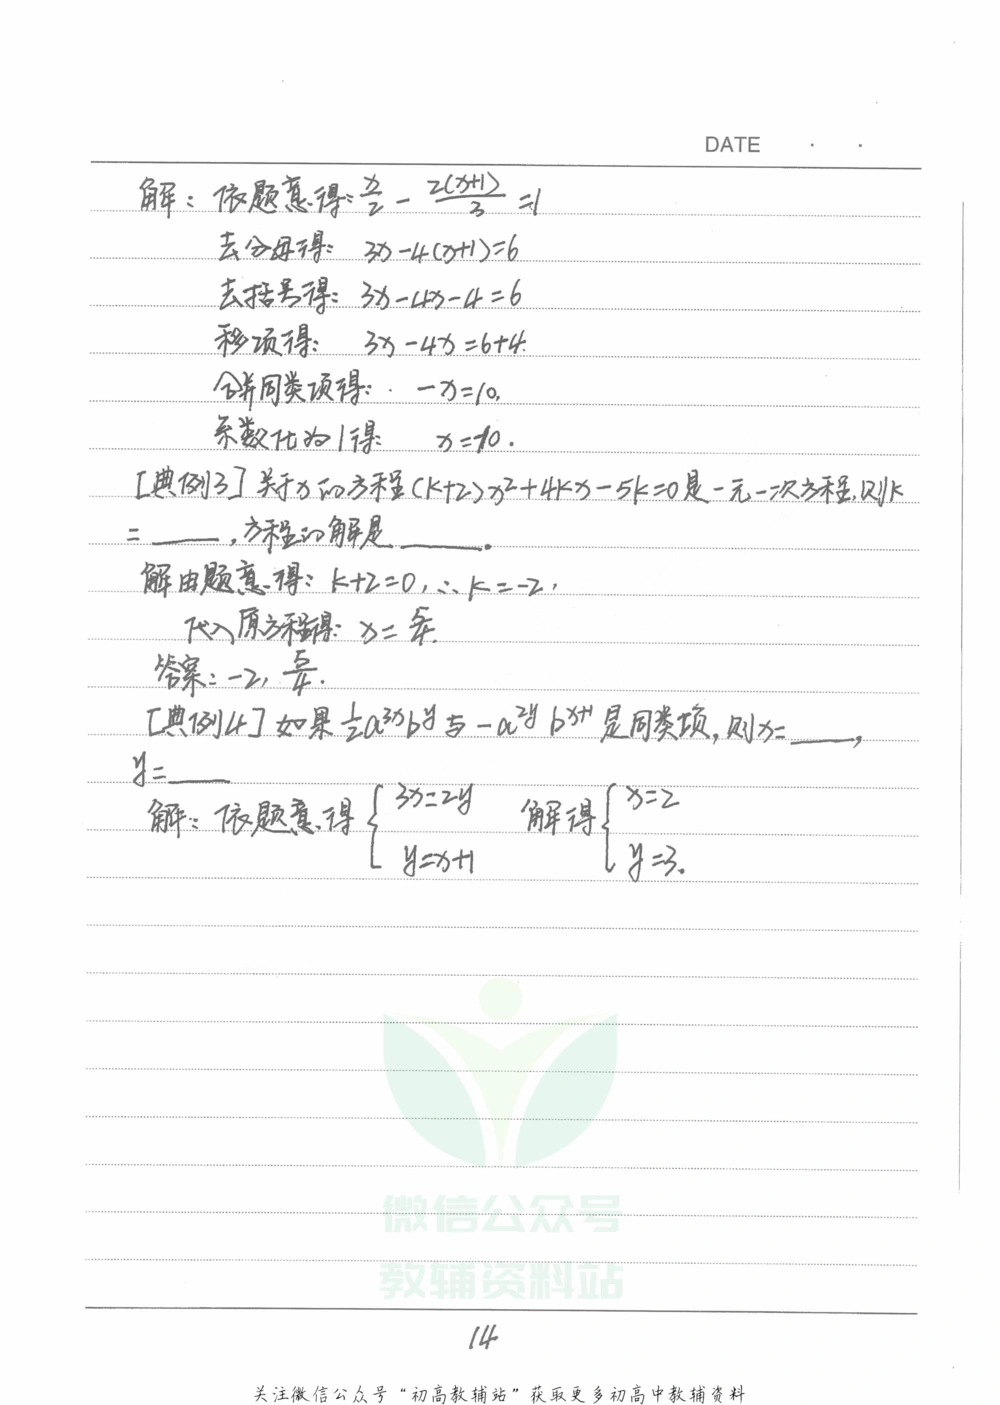 DATE · ·
解：依题意得：x/2 - 2(x+1)/3 =1
去分母得：3x-4(x+1)=6
去括号得：3x-4x-4=6
移项得：3x-4x=6+4.
合并同类项得：-x=10.
系数化为1得：x=-10.
[典例3]关于x的方程(k+2)x²+4kx-5k=0是一元一次方程,则k
=____,方程的解是____.
解由题意得：k+2=0,∴k=-2,
代入原方程得：x=5/4.
答案：-2, 5/4.
[典例4]如果1/2a^{3x}b^y与-a^{2y}b^{x+1}是同类项,则x=____,
y=____
解：依题意得{3x=2y 解得{x=2
y=x+1 y=3.
微信公众号
教辅资料站
14
关注微信公众号“初高教辅站”获取更多初高中教辅资料